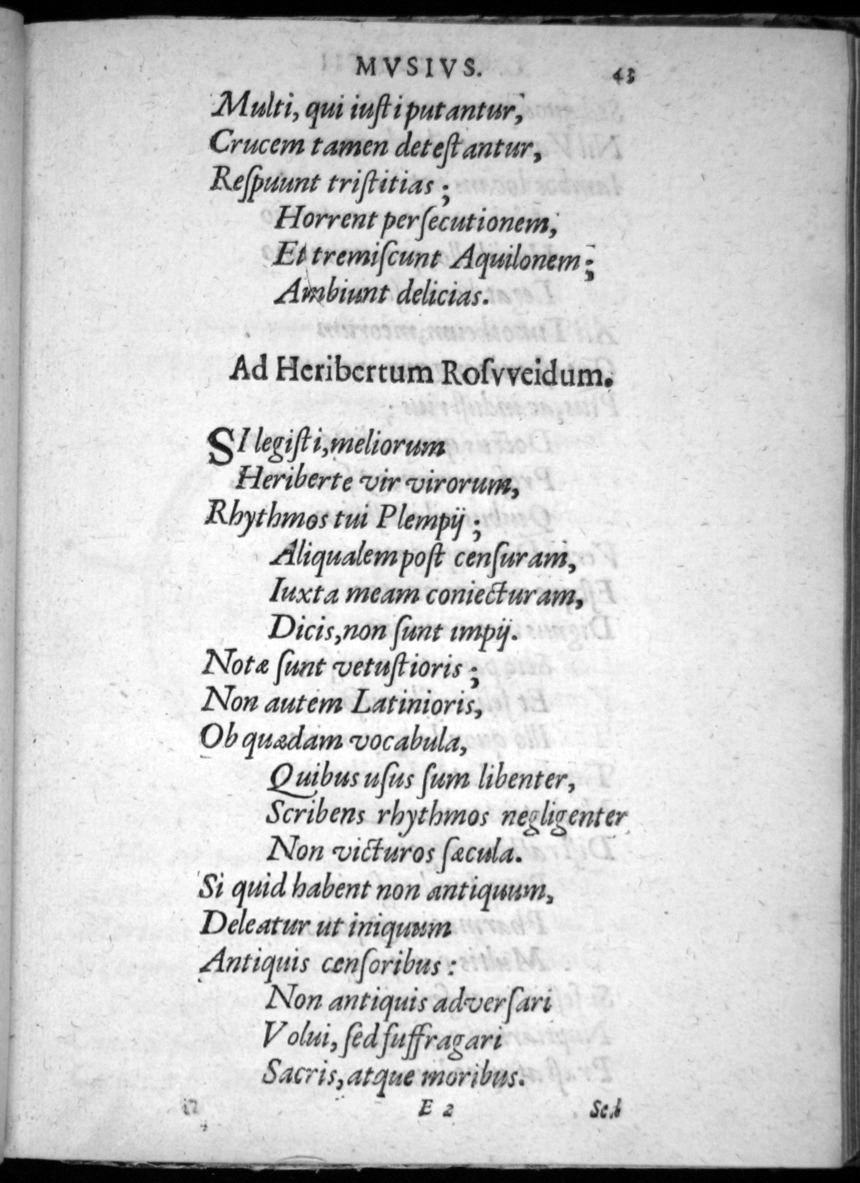 MVSIVS. 43
Multi, qui iusti putantur,
Crucem tamen detestantur,
Respuunt tristitias;
Horrent persecutionem,
Et tremiscunt Aquilonem;
Ambiunt delicias.
Ad Heribertum Rosvveidum.
SI legisti, meliorum
Heriberte vir virorum,
Rhythmos tui Plempij;
Aliqualem post censuram,
Iuxta meam coniecturam,
Dicis, non sunt impij.
Notæ sunt vetustioris;
Non autem Latinioris,
Ob quædam vocabula,
Quibus usus sum libenter,
Scribens rhythmos negligenter
Non victuros sæcula.
Si quid habent non antiquum,
Deleatur ut iniquum
Antiquis censoribus:
Non antiquis adversari
Volui, sed suffragari
Sacris, atque moribus.
E 2 Sed